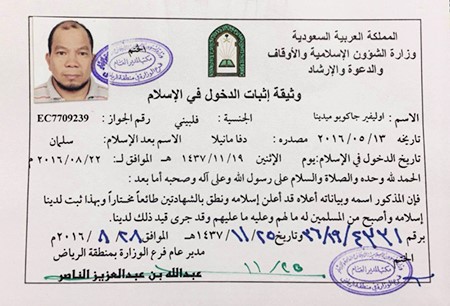 المملكة العربية السعودية
وزارة الشؤون الإسلامية والأوقاف
والدعوة والإرشاد
الختم
وثيقة إثبات الدخول في الإسلام
الاسم : اوليفير جاكوبو ميدينا الجنسية : فلبيني رقم الجواز : EC7709239
تاريخه ٢٠١٦/٠٥/١٣ مصدره : دفا مانيلا الاسم بعد الإسلام: سلمان
تاريخ الدخول في الإسلام: يوم الإثنين ١٤٣٧/١١/١٩ هـ الموافق لـ ٢٠١٦/٠٨/٢٢ م
الحمد لله وحده والصلاة والسلام على رسول الله وعلى آله وصحبه أما بعد :
فإن المذكور اسمه وبياناته أعلاه قد أعلن إسلامه ونطق بالشهادتين طائعاً مختاراً وبهذا ثبت لدينا
إسلامه وأصبح من المسلمين له ما لهم وعليه ما عليهم وقد جرى قيد ذلك لدينا.
برقم وتاريخ ١٤٣٧/١١/٢٥ هـ الموافق ٢٠١٦/٨/٢٨ م
مدير عام فرع الوزارة بمنطقة الرياض
الختم
عبدالله بن عبدالعزيز الناصر
١١/٢٥